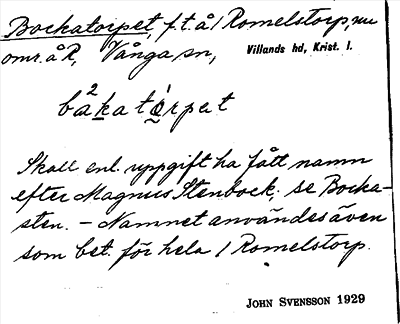 Bockatorpet, f.t. å 1 Romelstorp, nu
omr. å R, Vånga sn, Villands hd, Krist. l.
ba²katò̤rpat
Skall enl. uppgift ha fått namn
efter Magnus Stenbock, se Bocka-
sten. – Namnet användes även
som bet. för hela 1 Romelstorp.
JOHN SVENSSON 1929